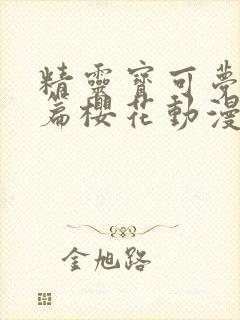 精靈寶可夢
篇櫻花動漫
金旭路